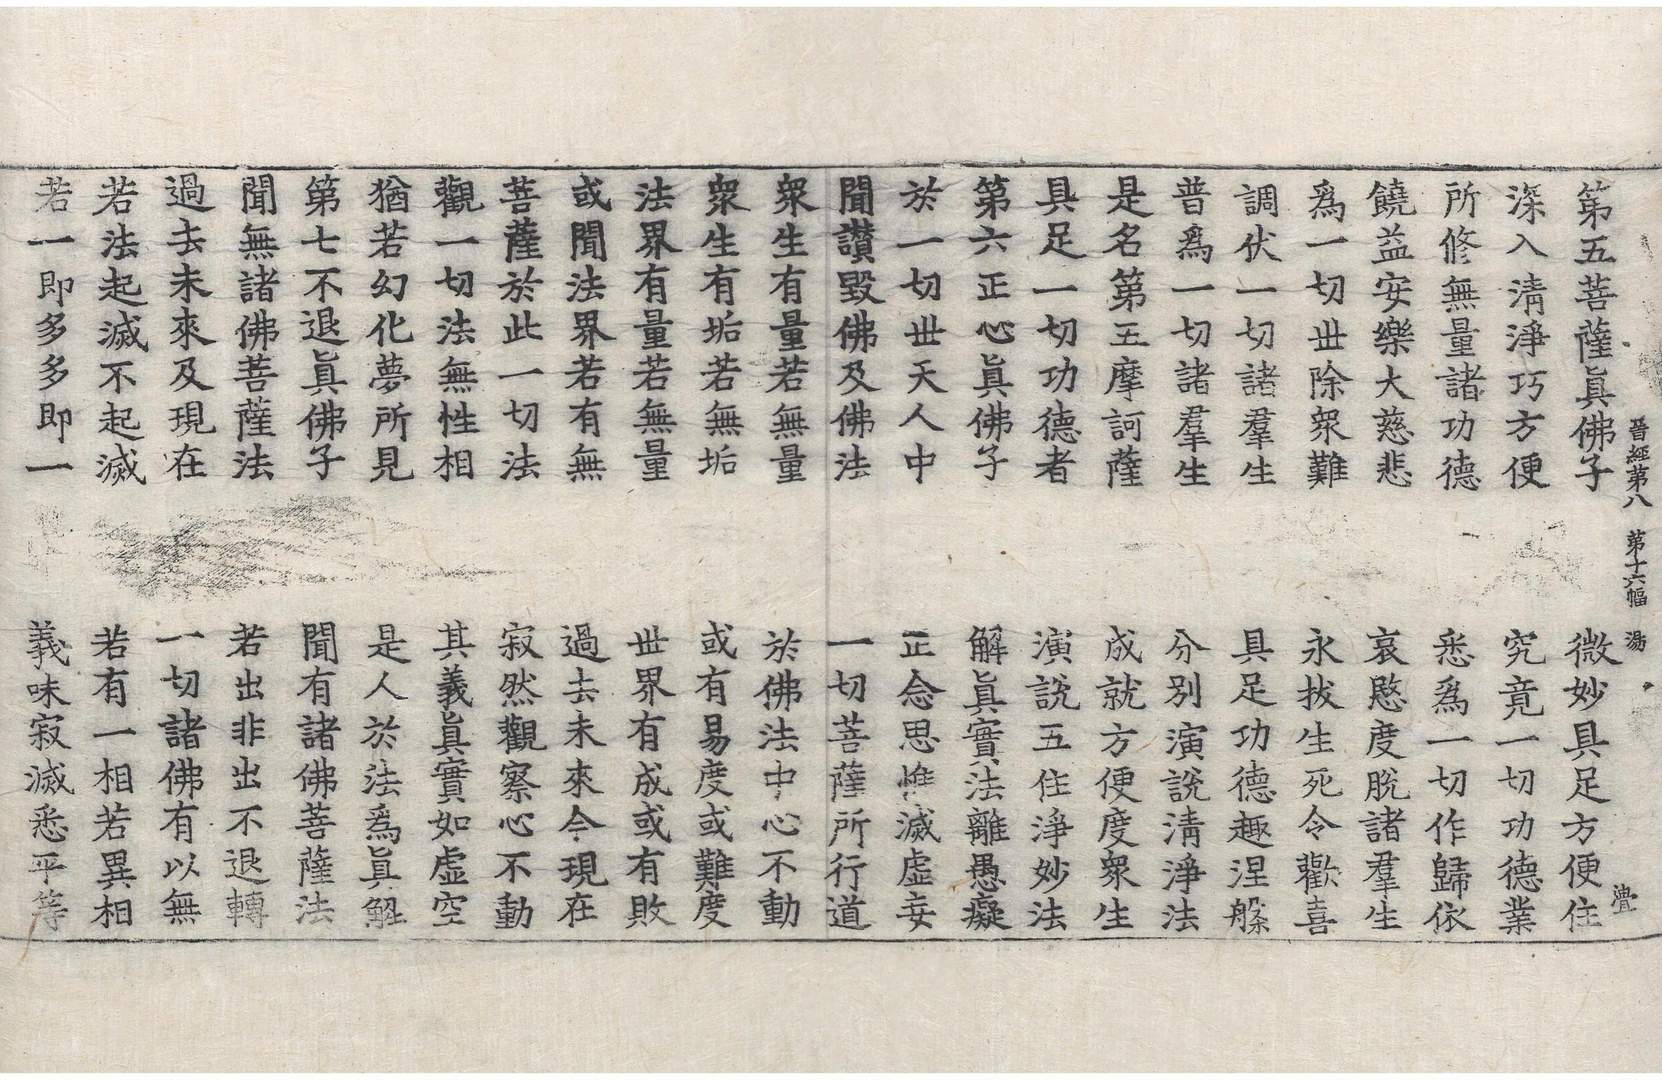 晉經第八　第十六幅　湯　疊
第五菩薩眞佛子　微妙具足方便住
深入淸淨巧方便　究竟一切功德業
所修無量諸功德　悉爲一切作歸依
饒益安樂大慈悲　哀愍度脫諸羣生
爲一切丗除衆難　永拔生死令歡喜
調伏一切諸羣生　具足功德趣涅槃
普爲一切諸羣生　分別演說淸淨法
是名第五摩訶薩　成就方便度衆生
具足一切功德者　演說五住淨妙法
第六正心眞佛子　解眞實法離愚癡
於一切丗天人中　正念思惟滅虛妄
聞讃毀佛及佛法　一切菩薩所行道
衆生有量若無量　於佛法中心不動
衆生有垢若無垢　或有易度或難度
法界有量若無量　丗界有成或有敗
或聞法界若有無　過去未來今現在
菩薩於此一切法　寂然觀察心不動
觀一切法無性相　其義眞實如虛空
猶若幻化夢所見　是人於法爲眞解
第七不退眞佛子　聞有諸佛菩薩法
聞無諸佛菩薩法　若出非出不退轉
過去未來及現在　一切諸佛有以無
若法起滅不起滅　若有一相若異相
若一即多多即一　義味寂滅悉平等